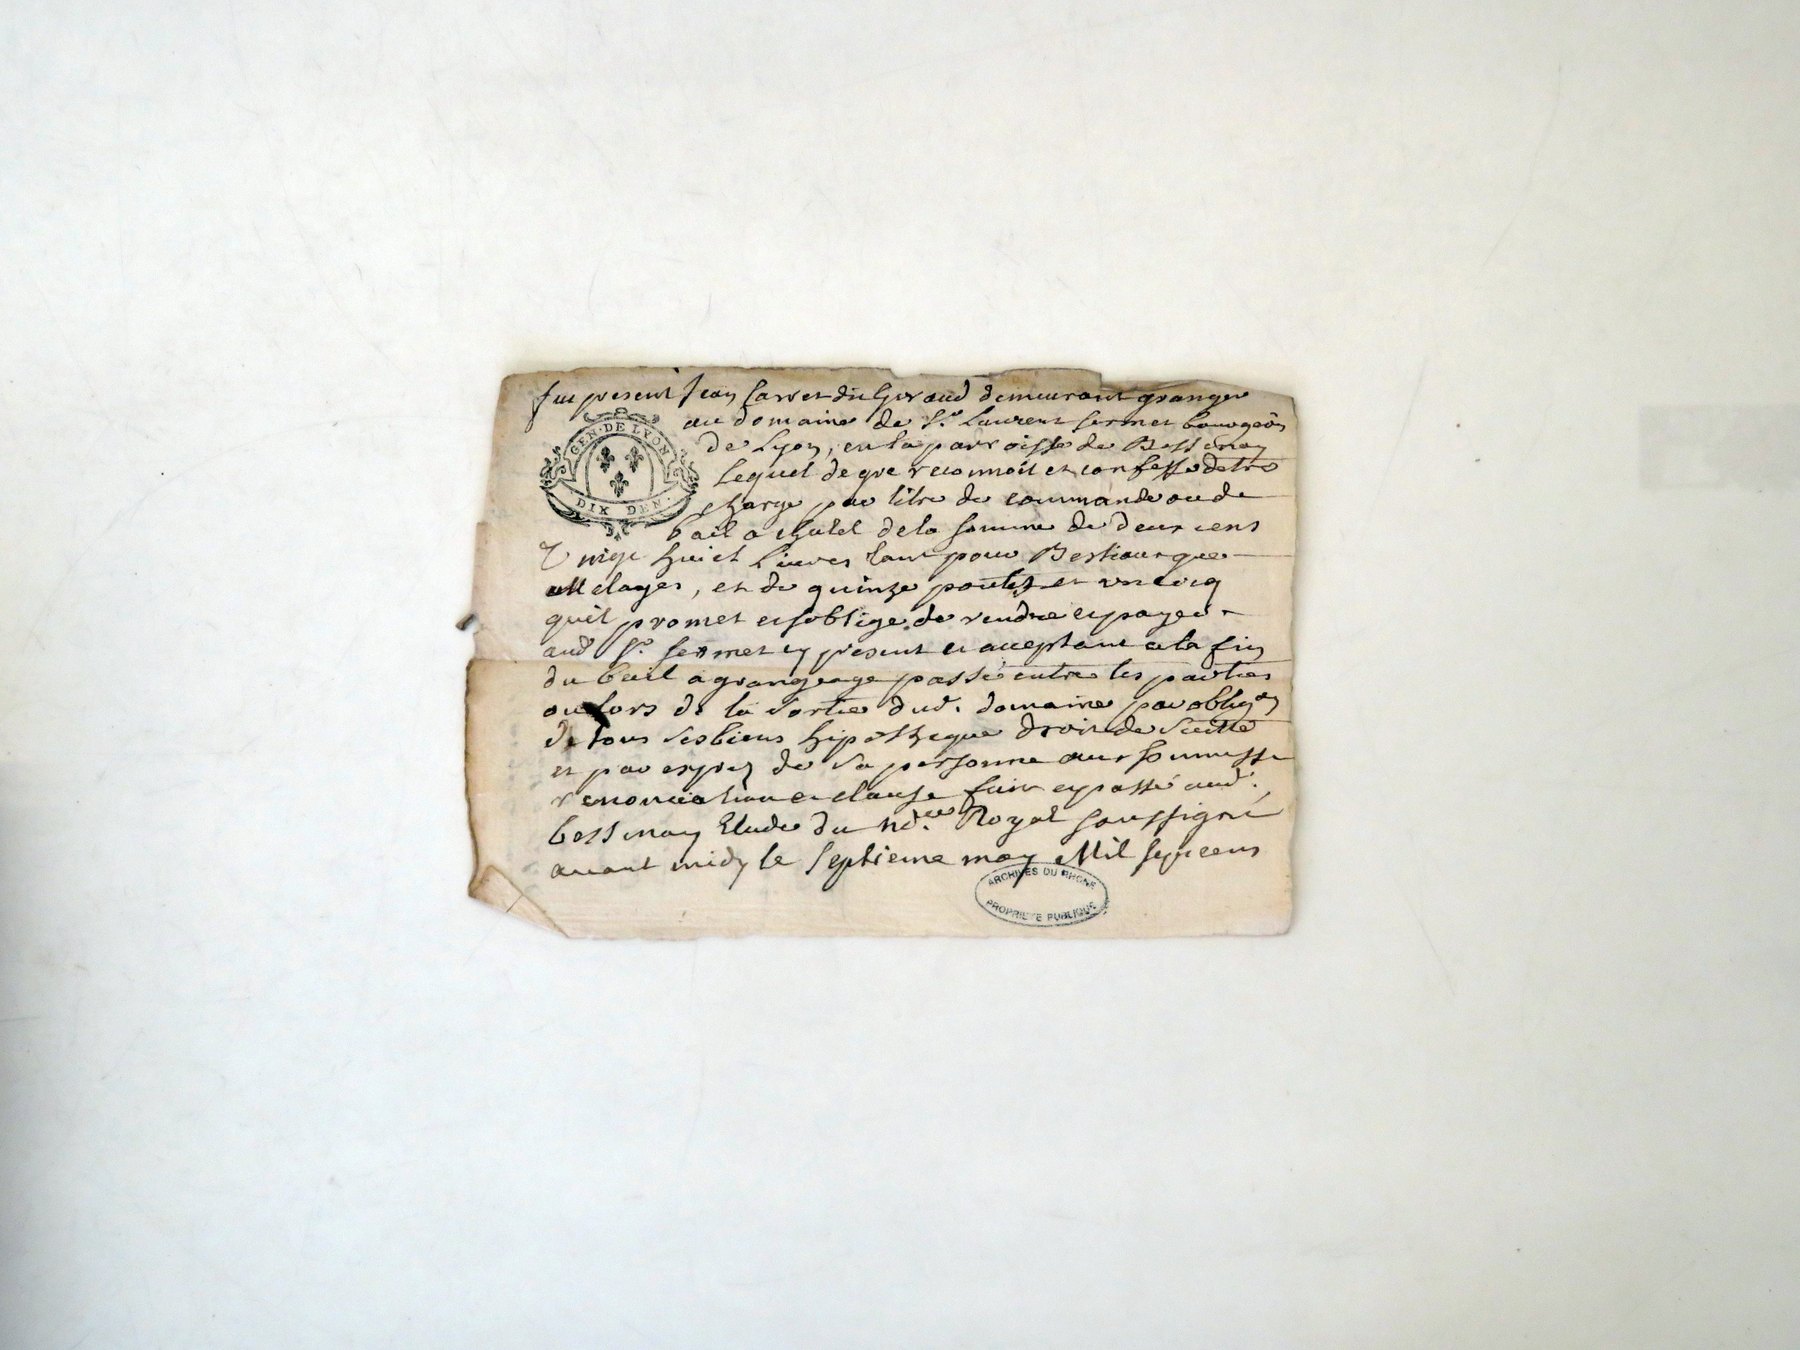 fut present Jean Carret dit Giraud demeurant granger
au domaine de Sr. Laurent fermet bourgeois
de Lyon, en la parroisse de Bessenay
GEN · DE LYON
DIX DEN ·
Lequel de gre reconnoit et confesse detre
charge par titre de commande ou de
bail a chatel de la somme de deux cens
vingt huict livres tant pour Bestiaux que
attelages, et de quinze poules et un cocq
quil promet et soblige de rendre et payer
aud Sr. fermet cy present et acceptant a la fin
du bail a grangeage passé entre les parties
ou lors de la sortie dud. domaine par obligon
de tous ses biens hipotheque droit de suitte
et par exprez de sa personne aux soumiss
renonciation et clause fait et passé aud.
bessenay Etude du nore. Royal soussigné
avant midy le septieme may Mil sept cens
ARCHIVES DU RHONE
PROPRIÉTÉ PUBLIQUE